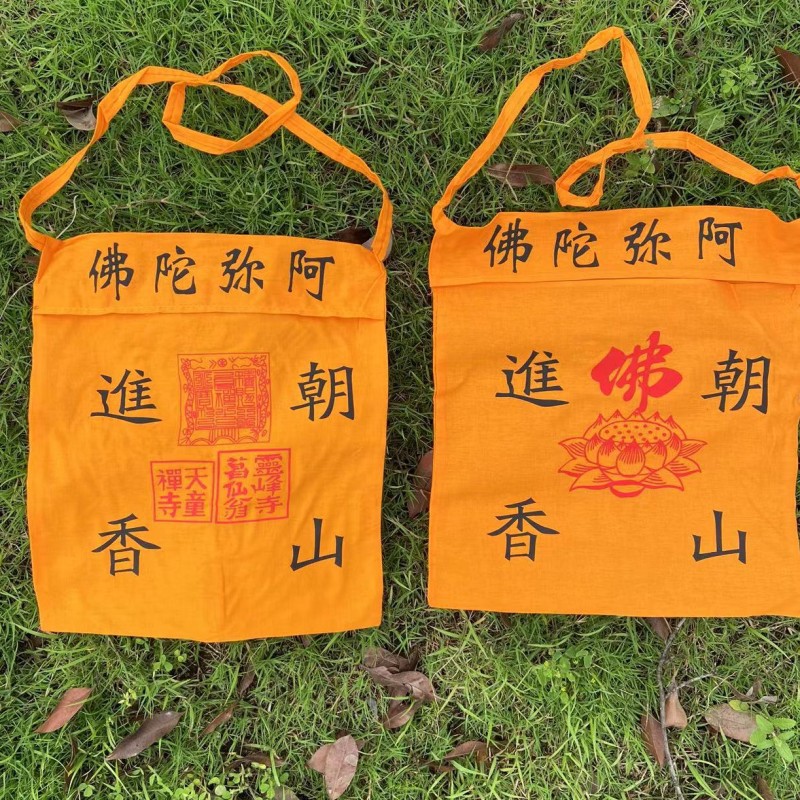 阿弥陀佛
朝山
進香
靈峰寺
葛仙翁
天童
禪寺
阿弥陀佛
朝山
進香
佛